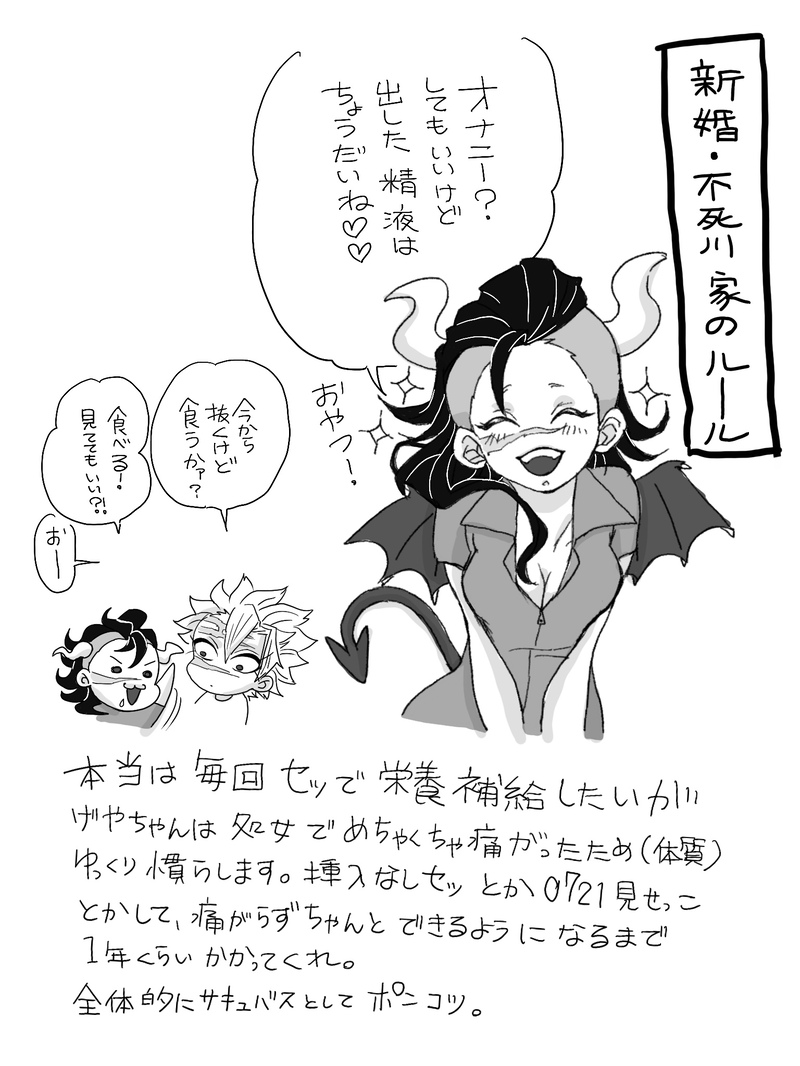 新婚・不死川家のルール
オナニー？
してもいいけど
出した精液は
ちょうだいね♡♡
おやつー。
今から
抜くけど
食うかァ？
食べる！
見ててもいい?!
おー
本当は毎回セッで栄養補給したいが
げやちゃんは処女でめちゃくちゃ痛がったため(体質)
ゆっくり慣らします。挿入なしセッとか0721見せっこ
とかして、痛がらずちゃんとできるようになるまで
1年くらいかかってくれ。
全体的にサキュバスとしてポンコツ。